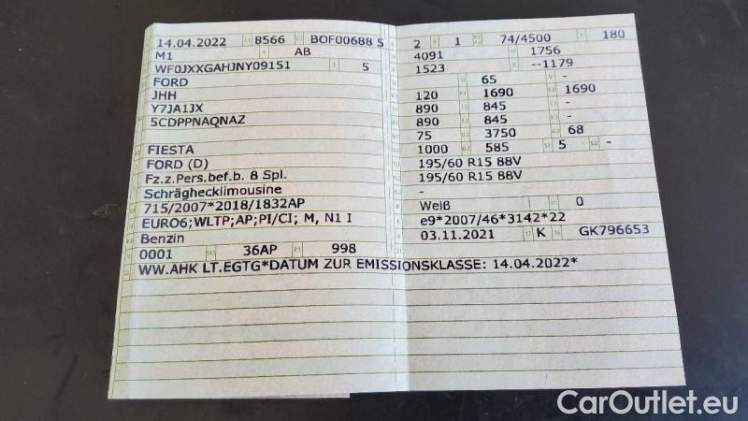 14.04.2022 8566 BOF00688 5
M1 AB
WF0JXXGAHJNY09151 5
FORD
JHH
Y7JA1JX
5CDPPNAQNAZ
FIESTA
FORD (D)
Fz.z.Pers.bef.b. 8 Spl.
Schräghecklimousine
715/2007*2018/1832AP
EURO6;WLTP;AP;PI/CI; M, N1 I
Benzin
0001 36AP 998
2 1 74/4500 180
4091 1756
1523 --1179
65 -
120 1690 1690
890 845 -
890 845 -
75 3750 68
1000 585 5 -
195/60 R15 88V
195/60 R15 88V
-
Weiß 0
e9*2007/46*3142*22
03.11.2021 K GK796653
WW.AHK LT.EGTG*DATUM ZUR EMISSIONSKLASSE: 14.04.2022*
CarOutlet.eu